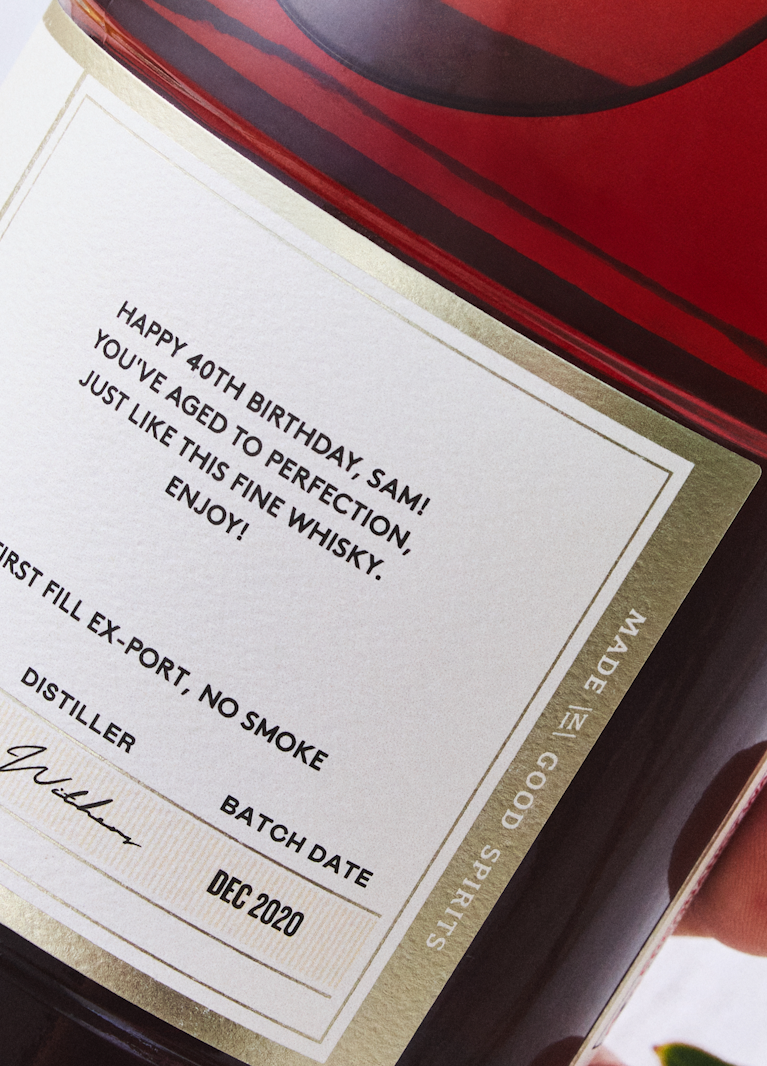 HAPPY 40TH BIRTHDAY, SAM!
YOU'VE AGED TO PERFECTION,
JUST LIKE THIS FINE WHISKY.
ENJOY!
FIRST FILL EX-PORT, NO SMOKE
DISTILLER
Withers
BATCH DATE
DEC 2020
MADE IN GOOD SPIRITS